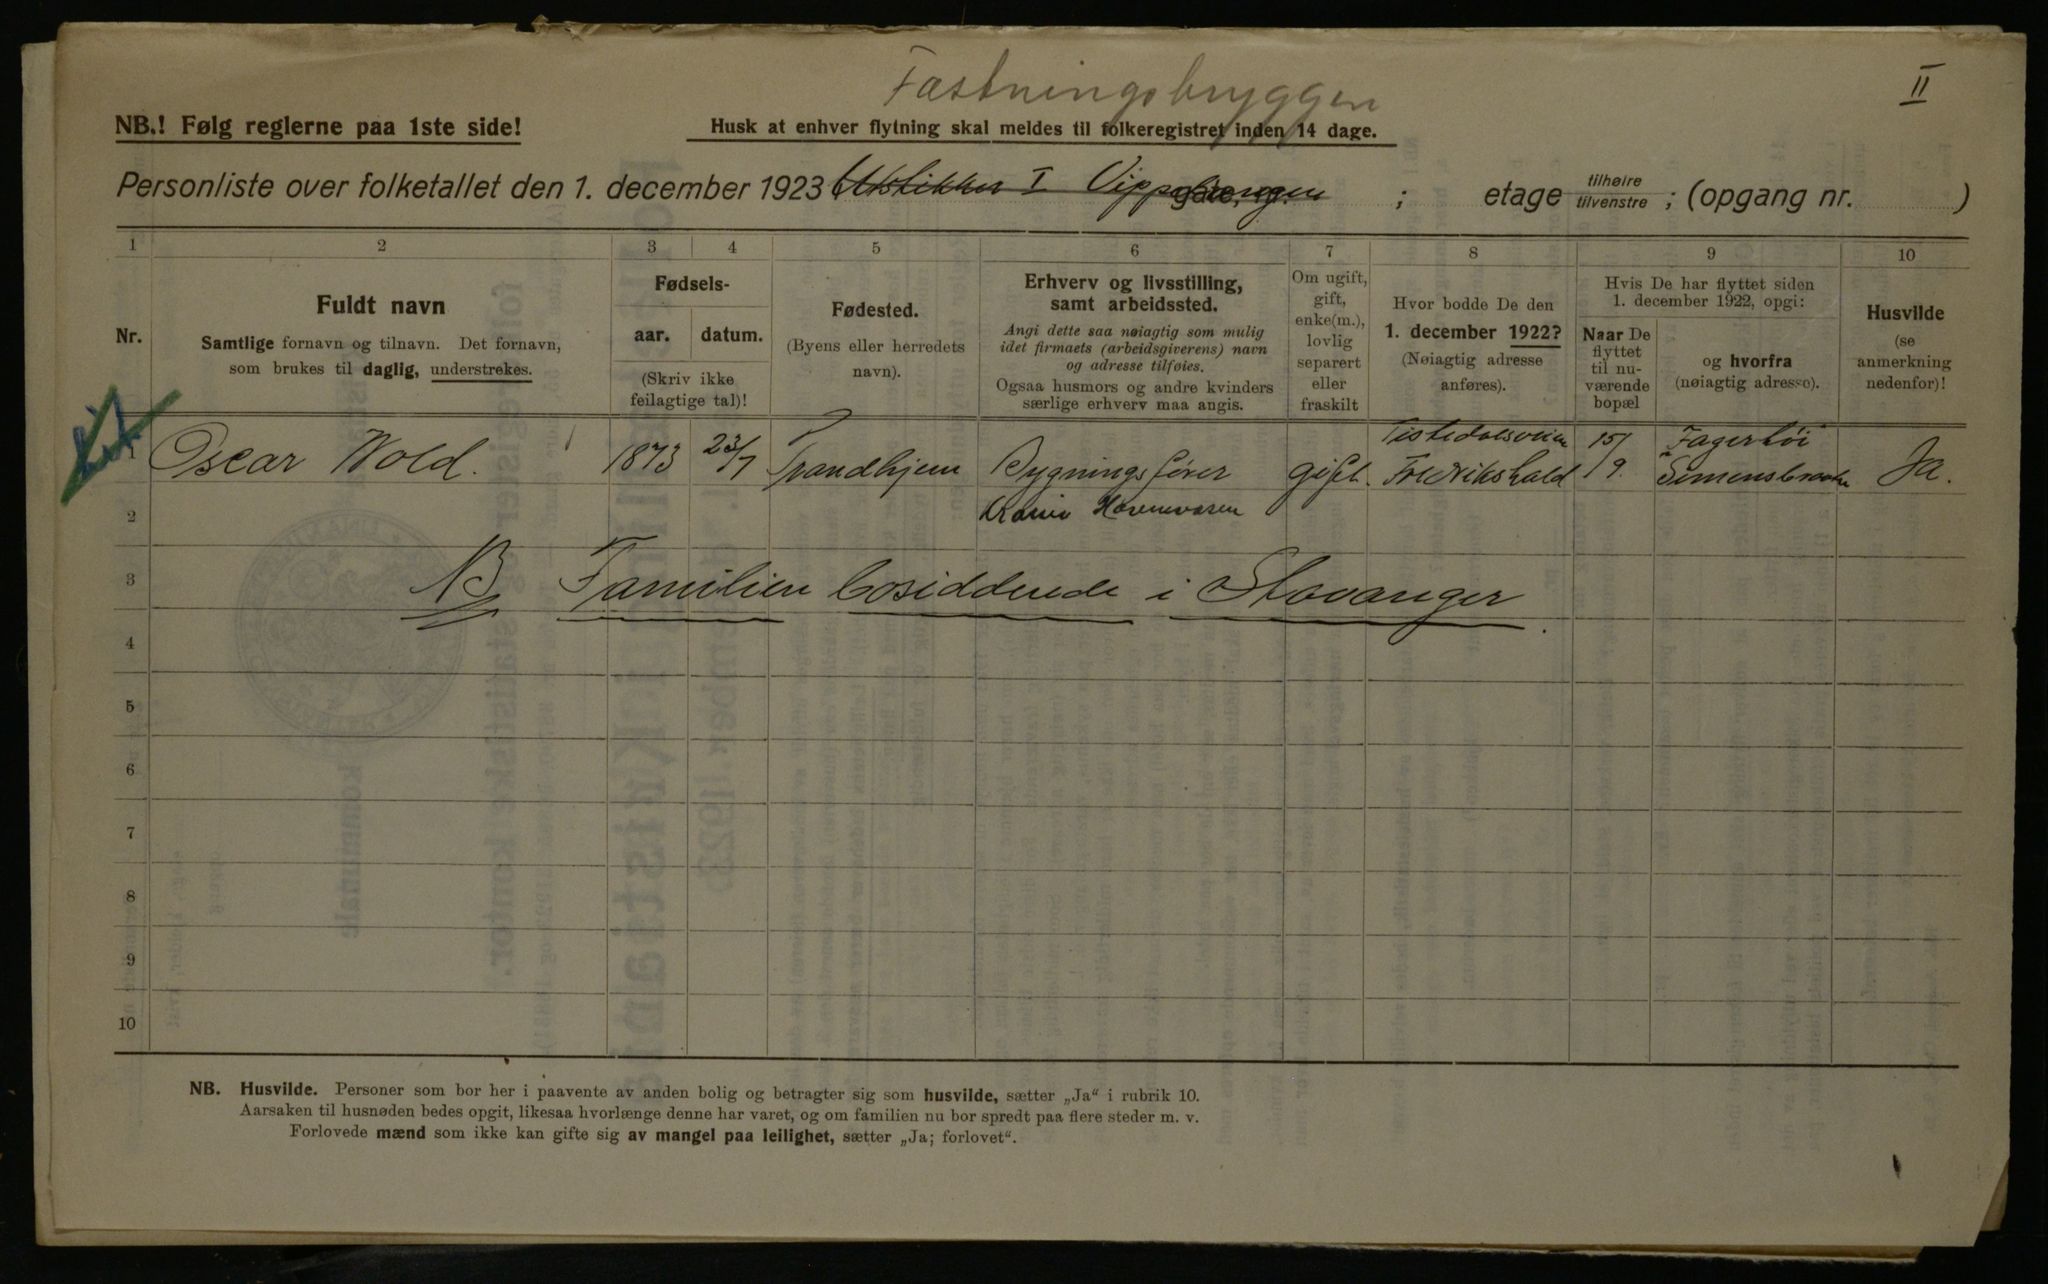 Fæstningsbryggen
II
NB.! Følg reglerne paa 1ste side!
Husk at enhver flytning skal meldes til folkeregistret inden 14 dage.
Personliste over folketallet den 1. december 1923 Utstikker I Vippetangen gate, nr. ; etage tilhøire tilvenstre ; (opgang nr. )
1 2 3 4 5 6 7 8 9 10
Nr.
Fuldt navn
Samtlige fornavn og tilnavn. Det fornavn,
som brukes til daglig, understrekes.
Fødsels-
aar. datum.
(Skriv ikke
feilagtige tal)!
Fødested.
(Byens eller herredets
navn).
Erhverv og livsstilling,
samt arbeidssted.
Angi dette saa nøiagtig som mulig
idet firmaets (arbeidsgiverens) navn
og adresse tilføies.
Ogsaa husmors og andre kvinders
særlige erhverv maa angis.
Om ugift,
gift,
enke(m.),
lovlig
separert
eller
fraskilt
Hvor bodde De den
1. december 1922?
(Nøiagtig adresse
anføres).
Hvis De har flyttet siden
1. december 1922, opgi:
Naar De
flyttet
til nu-
værende
bopæl
og hvorfra
(nøiagtig adresse).
Husvilde
(se
anmerkning
nedenfor)!
1 Oscar Wold. 1873 23/7 Trondhjem Bygningsfører gift. Tistedalsveien Fredrikshald 15/9. Fagerhøi Simensbraaten Ja.
2 Havnevæsen
3 NB Familien bosiddende i Stavanger.
4
5
6
7
8
9
10
NB. Husvilde. Personer som bor her i paavente av anden bolig og betragter sig som husvilde, sætter „Ja" i rubrik 10.
Aarsaken til husnøden bedes opgit, likesaa hvorlænge denne har varet, og om familien nu bor spredt paa flere steder m. v.
Forlovede mænd som ikke kan gifte sig av mangel paa leilighet, sætter „Ja; forlovet".